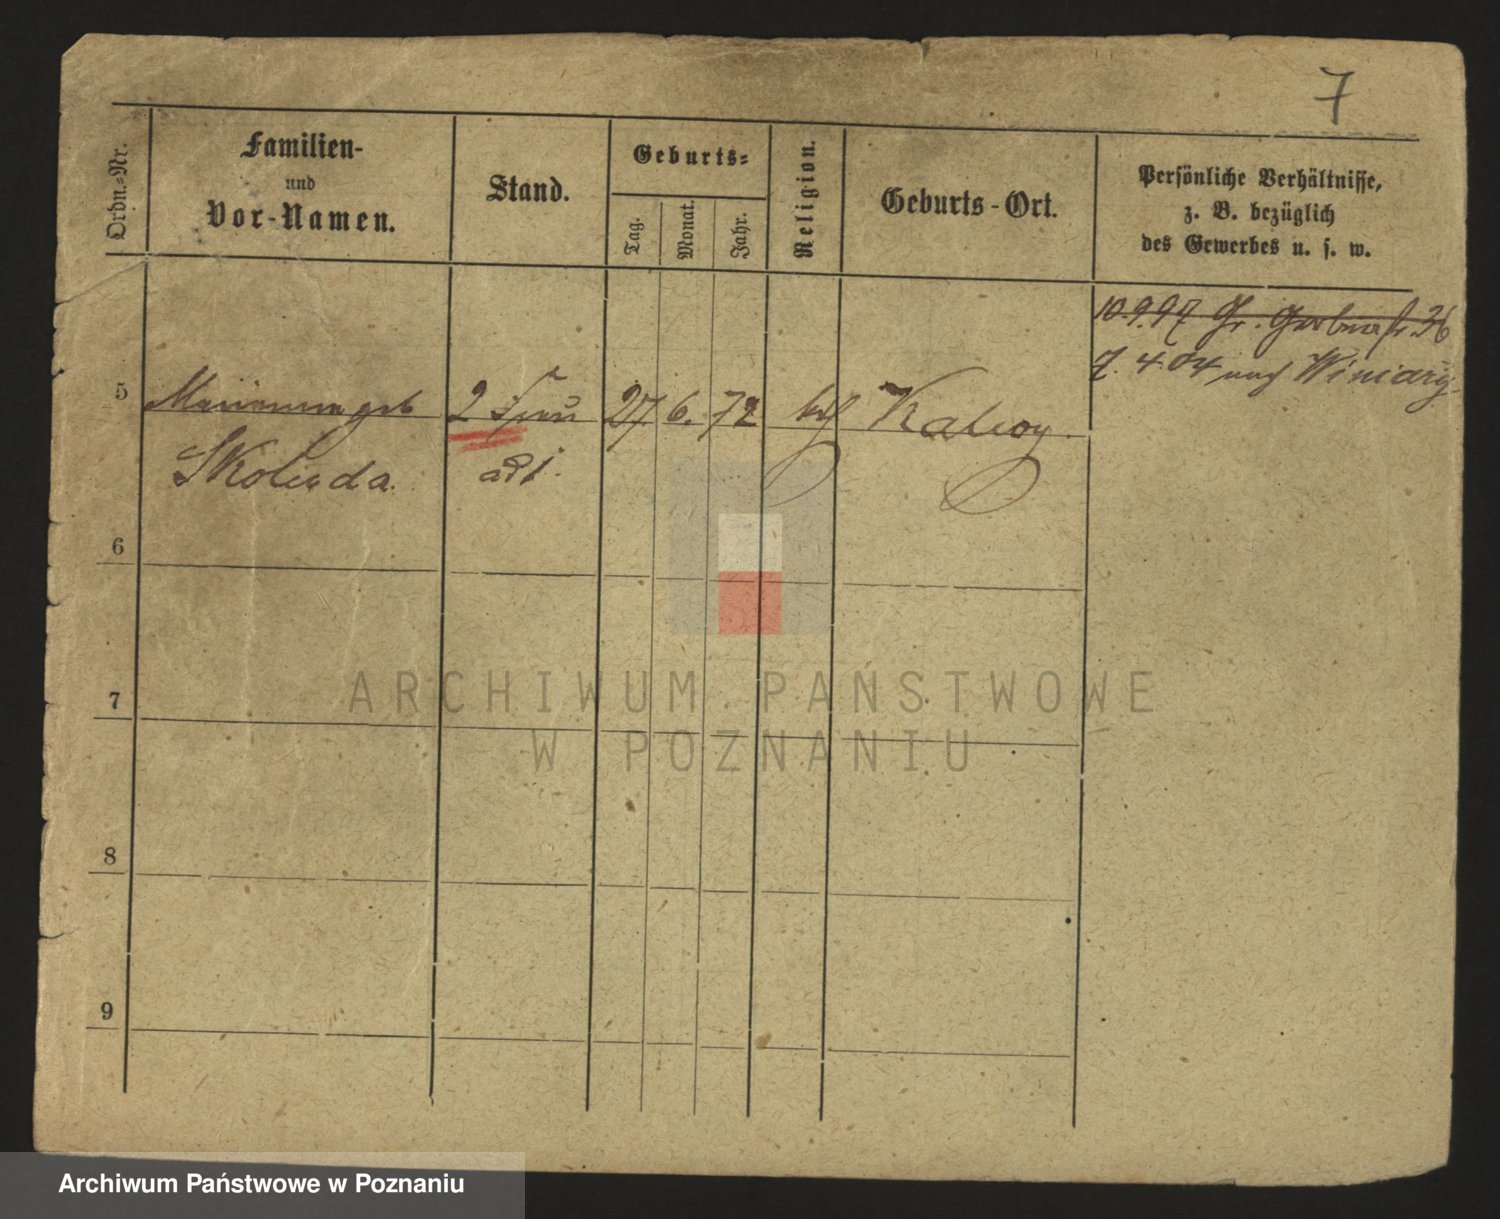 7
Ordn.-Nr.
Familien-
und
Vor-Namen.
Stand.
Geburts-
Tag.
Monat.
Jahr.
Religion.
Geburts-Ort.
Persönliche Verhältnisse,
z. B. bezüglich
des Gewerbes u. s. w.
10.9.97 Gr. Gerberstr. 36
4.04 nach Winiary
5 Marianna geb 2 Frau 27 6. 72
Skolisda
6
7
8
9
ARCHIWUM PAŃSTWOWE
W POZNANIU
Archiwum Państwowe w Poznaniu